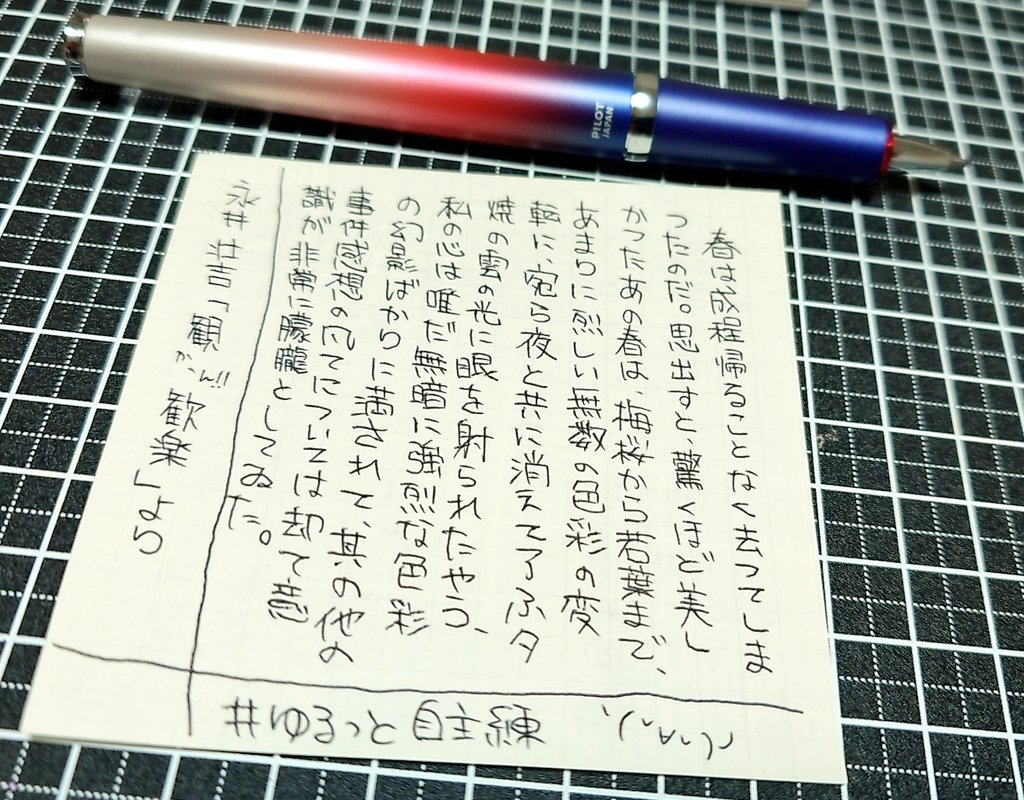 PILOT
JAPAN
春は成程帰ることなく去ってしま
ったのだ。思出すと、驚くほど美し
かったあの春は、梅桜から若葉まで、
あまりに烈しい無数の色彩の変
転に、宛ら夜と共に消えて了ふ夕
焼の雲の光に眼を射られたやう、
私の心は唯だ無暗に強烈な色彩
の幻影ばかりに満されて、其の他の
事件感想の凡てについては却て意
識が非常に朦朧としてゐた。
永井壮吉「観 歓楽」より
がん!!
#ゆるっと自主練